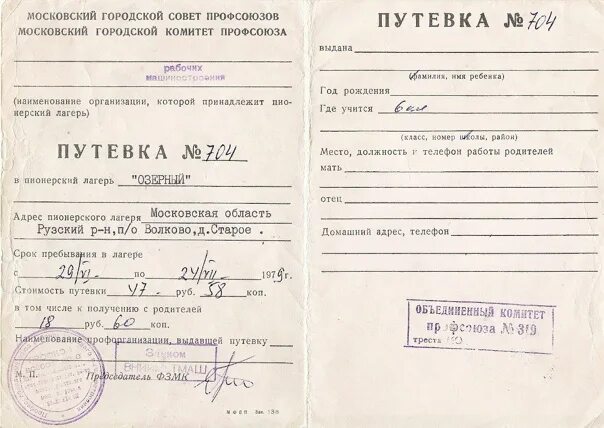 МОСКОВСКИЙ ГОРОДСКОЙ СОВЕТ ПРОФСОЮЗОВ
МОСКОВСКИЙ ГОРОДСКОЙ КОМИТЕТ ПРОФСОЮЗА
рабочих
машиностроения
(наименование организации, которой принадлежит пио-
нерский лагерь)
ПУТЕВКА № 704
в пионерский лагерь "ОЗЕРНЫЙ"
Адрес пионерского лагеря Московская область
Рузский р-н,п/о Волково,д.Старое .
Срок пребывания в лагере
с 29/VI по 24/VII 1979г.
Стоимость путевки 47 руб. 58 коп.
в том числе к получению с родителей
18 руб. 60 коп.
Наименование профорганизации, выдавшей путевку
М. П. Председатель ФЗМК
ПУТЕВКА № 704
выдана
(фамилия, имя ребенка)
Год рождения
Где учится
(класс, номер школы, район)
Место, должность и телефон работы родителей
мать
отец
Домашний адрес, телефон
ОБЪЕДИНЕННЫЙ КОМИТЕТ
профсоюза № 319
треста